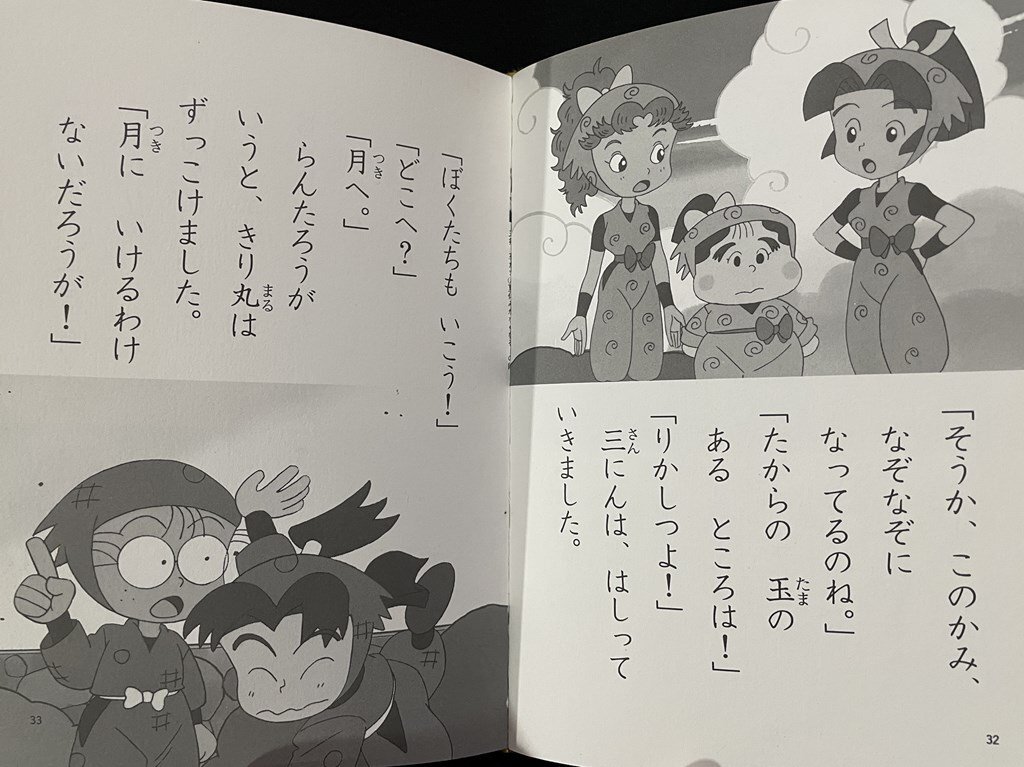 「そうか、このかみ、
なぞなぞに
なってるのね。」
「たからの　玉の
ある　ところは！」
「りかしつよ！」
三にんは、はしって
いきました。
32
「ぼくたちも　いこう！」
「どこへ？」
「月へ。」
らんたろうが
いうと、きり丸は
ずっこけました。
「月に　いけるわけ
ないだろうが！」
33